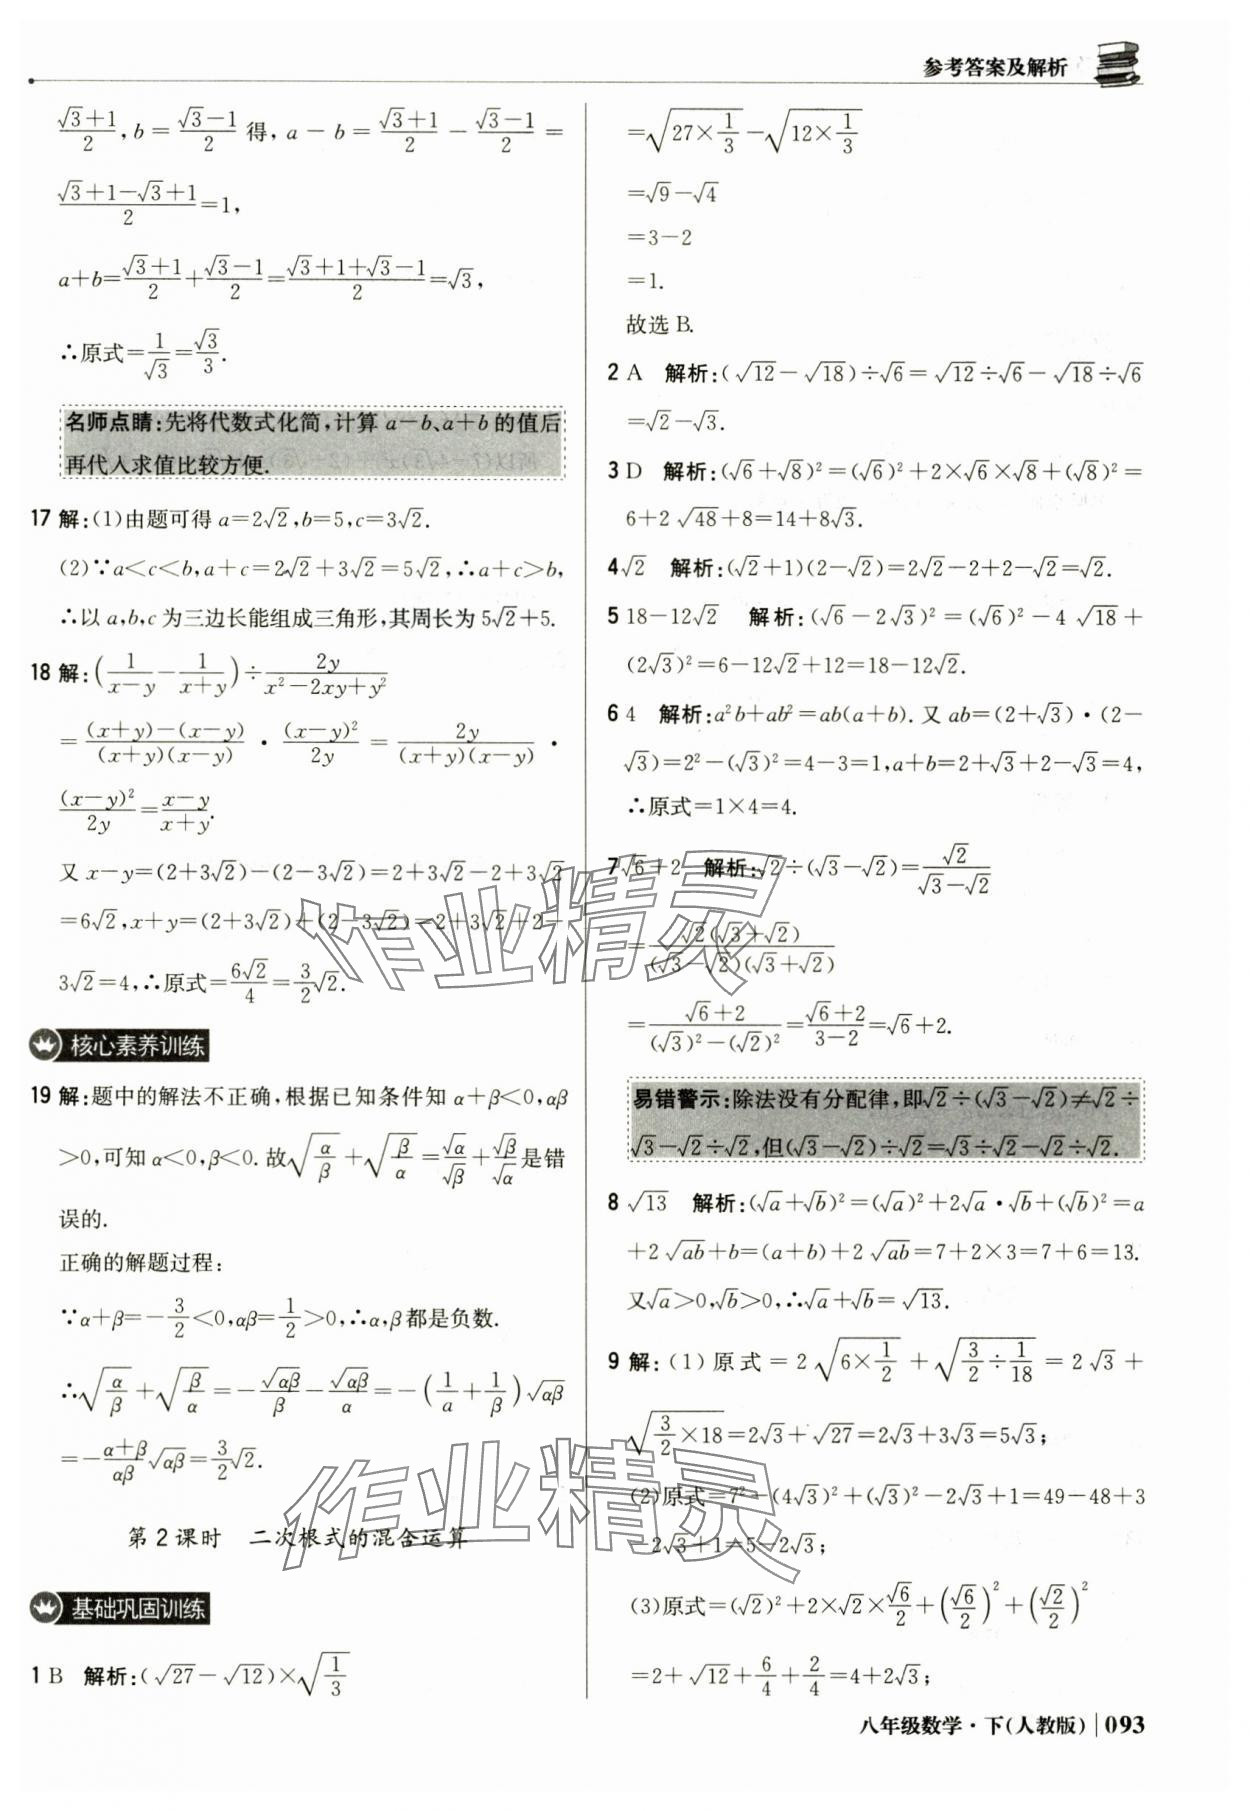 参考答案及解析
(√3+1)/2, b=(√3-1)/2 得, a-b=(√3+1)/2-(√3-1)/2=
(√3+1-√3+1)/2=1,
a+b=(√3+1)/2+(√3-1)/2=(√3+1+√3-1)/2=√3,
∴原式=1/√3=√3/3.
名师点睛:先将代数式化简,计算 a-b、a+b 的值后
再代入求值比较方便.
17 解:(1)由题可得 a=2√2,b=5,c=3√2.
(2)∵a<c<b,a+c=2√2+3√2=5√2,∴a+c>b,
∴以 a,b,c 为三边长能组成三角形,其周长为 5√2+5.
18 解:(1/(x-y)-1/(x+y))÷2y/(x²-2xy+y²)
=((x+y)-(x-y))/((x+y)(x-y))·(x-y)²/2y=2y/((x+y)(x-y))·
(x-y)²/2y=(x-y)/(x+y).
又 x-y=(2+3√2)-(2-3√2)=2+3√2-2+3√2
=6√2,x+y=(2+3√2)+(2-3√2)=2+3√2+2-
3√2=4,∴原式=6√2/4=3/2√2.
核心素养训练
19 解:题中的解法不正确,根据已知条件知 α+β<0,αβ
>0,可知 α<0,β<0.故√(α/β)+√(β/α)=√α/√β+√β/√α是错
误的.
正确的解题过程:
∵α+β=-3/2<0,αβ=1/2>0,∴α,β都是负数.
∴√(α/β)+√(β/α)=-√αβ/β-√αβ/α=-(1/a+1/β)√αβ
=-(α+β)/αβ√αβ=3/2√2.
第 2 课时 二次根式的混合运算
基础巩固训练
1 B 解析:(√27-√12)×√(1/3)
=√(27×1/3)-√(12×1/3)
=√9-√4
=3-2
=1.
故选 B.
2 A 解析:(√12-√18)÷√6=√12÷√6-√18÷√6
=√2-√3.
3 D 解析:(√6+√8)²=(√6)²+2×√6×√8+(√8)²=
6+2√48+8=14+8√3.
4 √2 解析:(√2+1)(2-√2)=2√2-2+2-√2=√2.
5 18-12√2 解析:(√6-2√3)²=(√6)²-4√18+
(2√3)²=6-12√2+12=18-12√2.
6 4 解析:a²b+ab²=ab(a+b).又 ab=(2+√3)·(2-
√3)=2²-(√3)²=4-3=1,a+b=2+√3+2-√3=4,
∴原式=1×4=4.
7 √6+2 解析:√2÷(√3-√2)=√2/(√3-√2)
=√2(√3+√2)/((√3-√2)(√3+√2))
=(√6+2)/((√3)²-(√2)²)=(√6+2)/(3-2)=√6+2.
易错警示:除法没有分配律,即√2÷(√3-√2)≠√2÷
√3-√2÷√2,但(√3-√2)÷√2=√3÷√2-√2÷√2.
8 √13 解析:(√a+√b)²=(√a)²+2√a·√b+(√b)²=a
+2√ab+b=(a+b)+2√ab=7+2×3=7+6=13.
又√a>0,√b>0,∴√a+√b=√13.
9 解:(1)原式=2√(6×1/2)+√(3/2÷1/18)=2√3+
√(3/2×18)=2√3+√27=2√3+3√3=5√3;
(2)原式=7²-(4√3)²+(√3)²-2√3+1=49-48+3
-2√3+1=5-2√3;
(3)原式=(√2)²+2×√2×√6/2+(√6/2)²+(√2/2)²
=2+√12+6/4+2/4=4+2√3;
八年级数学·下(人教版)|093
作业精灵
作业精灵